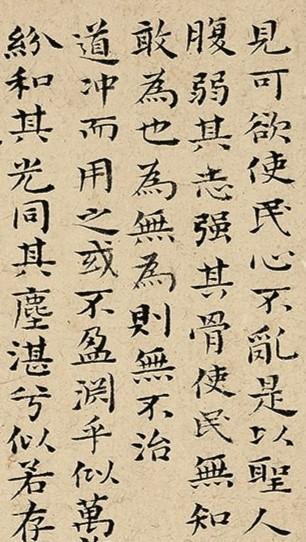 見可欲使民心不亂是以聖人
腹弱其志强其骨使民無知
敢為也為無為則無不治
道冲而用之或不盈淵乎似萬
紛和其光同其塵湛兮似若存